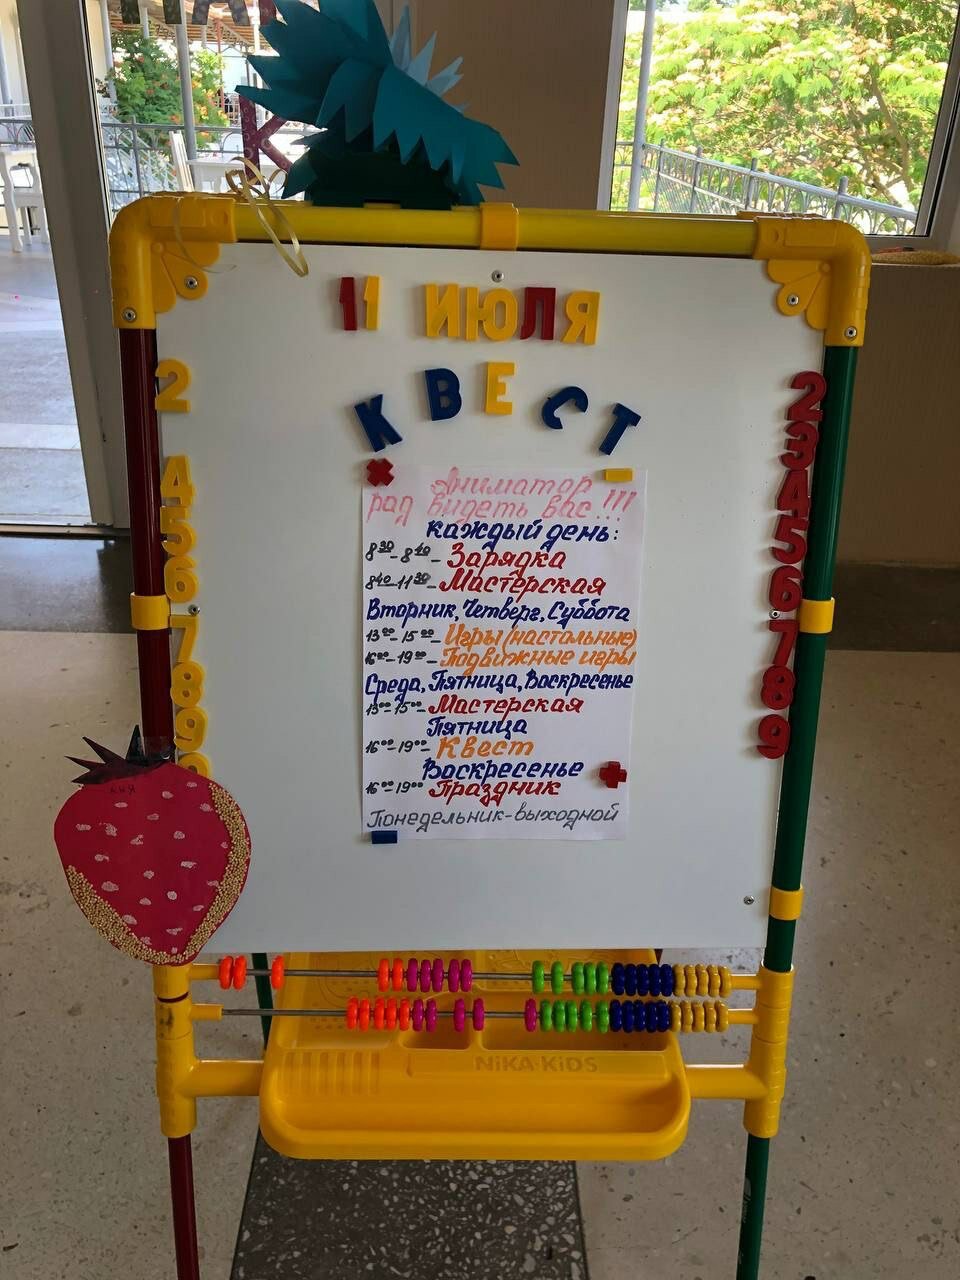 К
11 ИЮЛЯ
КВЕСТ
Аниматор
рад видеть вас!!!
каждый день:
8³⁰-8⁴⁰- Зарядка
8⁴⁰-11³⁰- Мастерская
Вторник, Четверг, Суббота
13⁰⁰-15⁰⁰- Игры (настольные)
16⁰⁰-19⁰⁰- Подвижные игры
Среда, Пятница, Воскресенье
13⁰⁰-15⁰⁰- Мастерская
Пятница
16⁰⁰-19⁰⁰- Квест
Воскресенье
16⁰⁰-19⁰⁰ Праздник
Понедельник-выходной
2
4
5
6
7
8
9
2
3
4
5
6
7
8
9
NiKA-KiDS